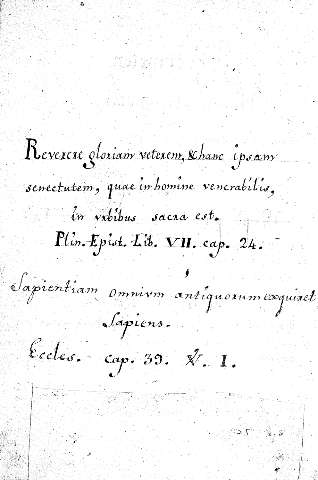 Reverere gloriam veterem, & hanc ipsam
senectutem, quae in homine venerabilis,
in vrbibus sacra est.
Plin. Epist. Lib. VII. cap. 24.
Sapientiam omnivm antiquorum exquiret
Sapiens.
Eccles. cap. 39. ℣. I.